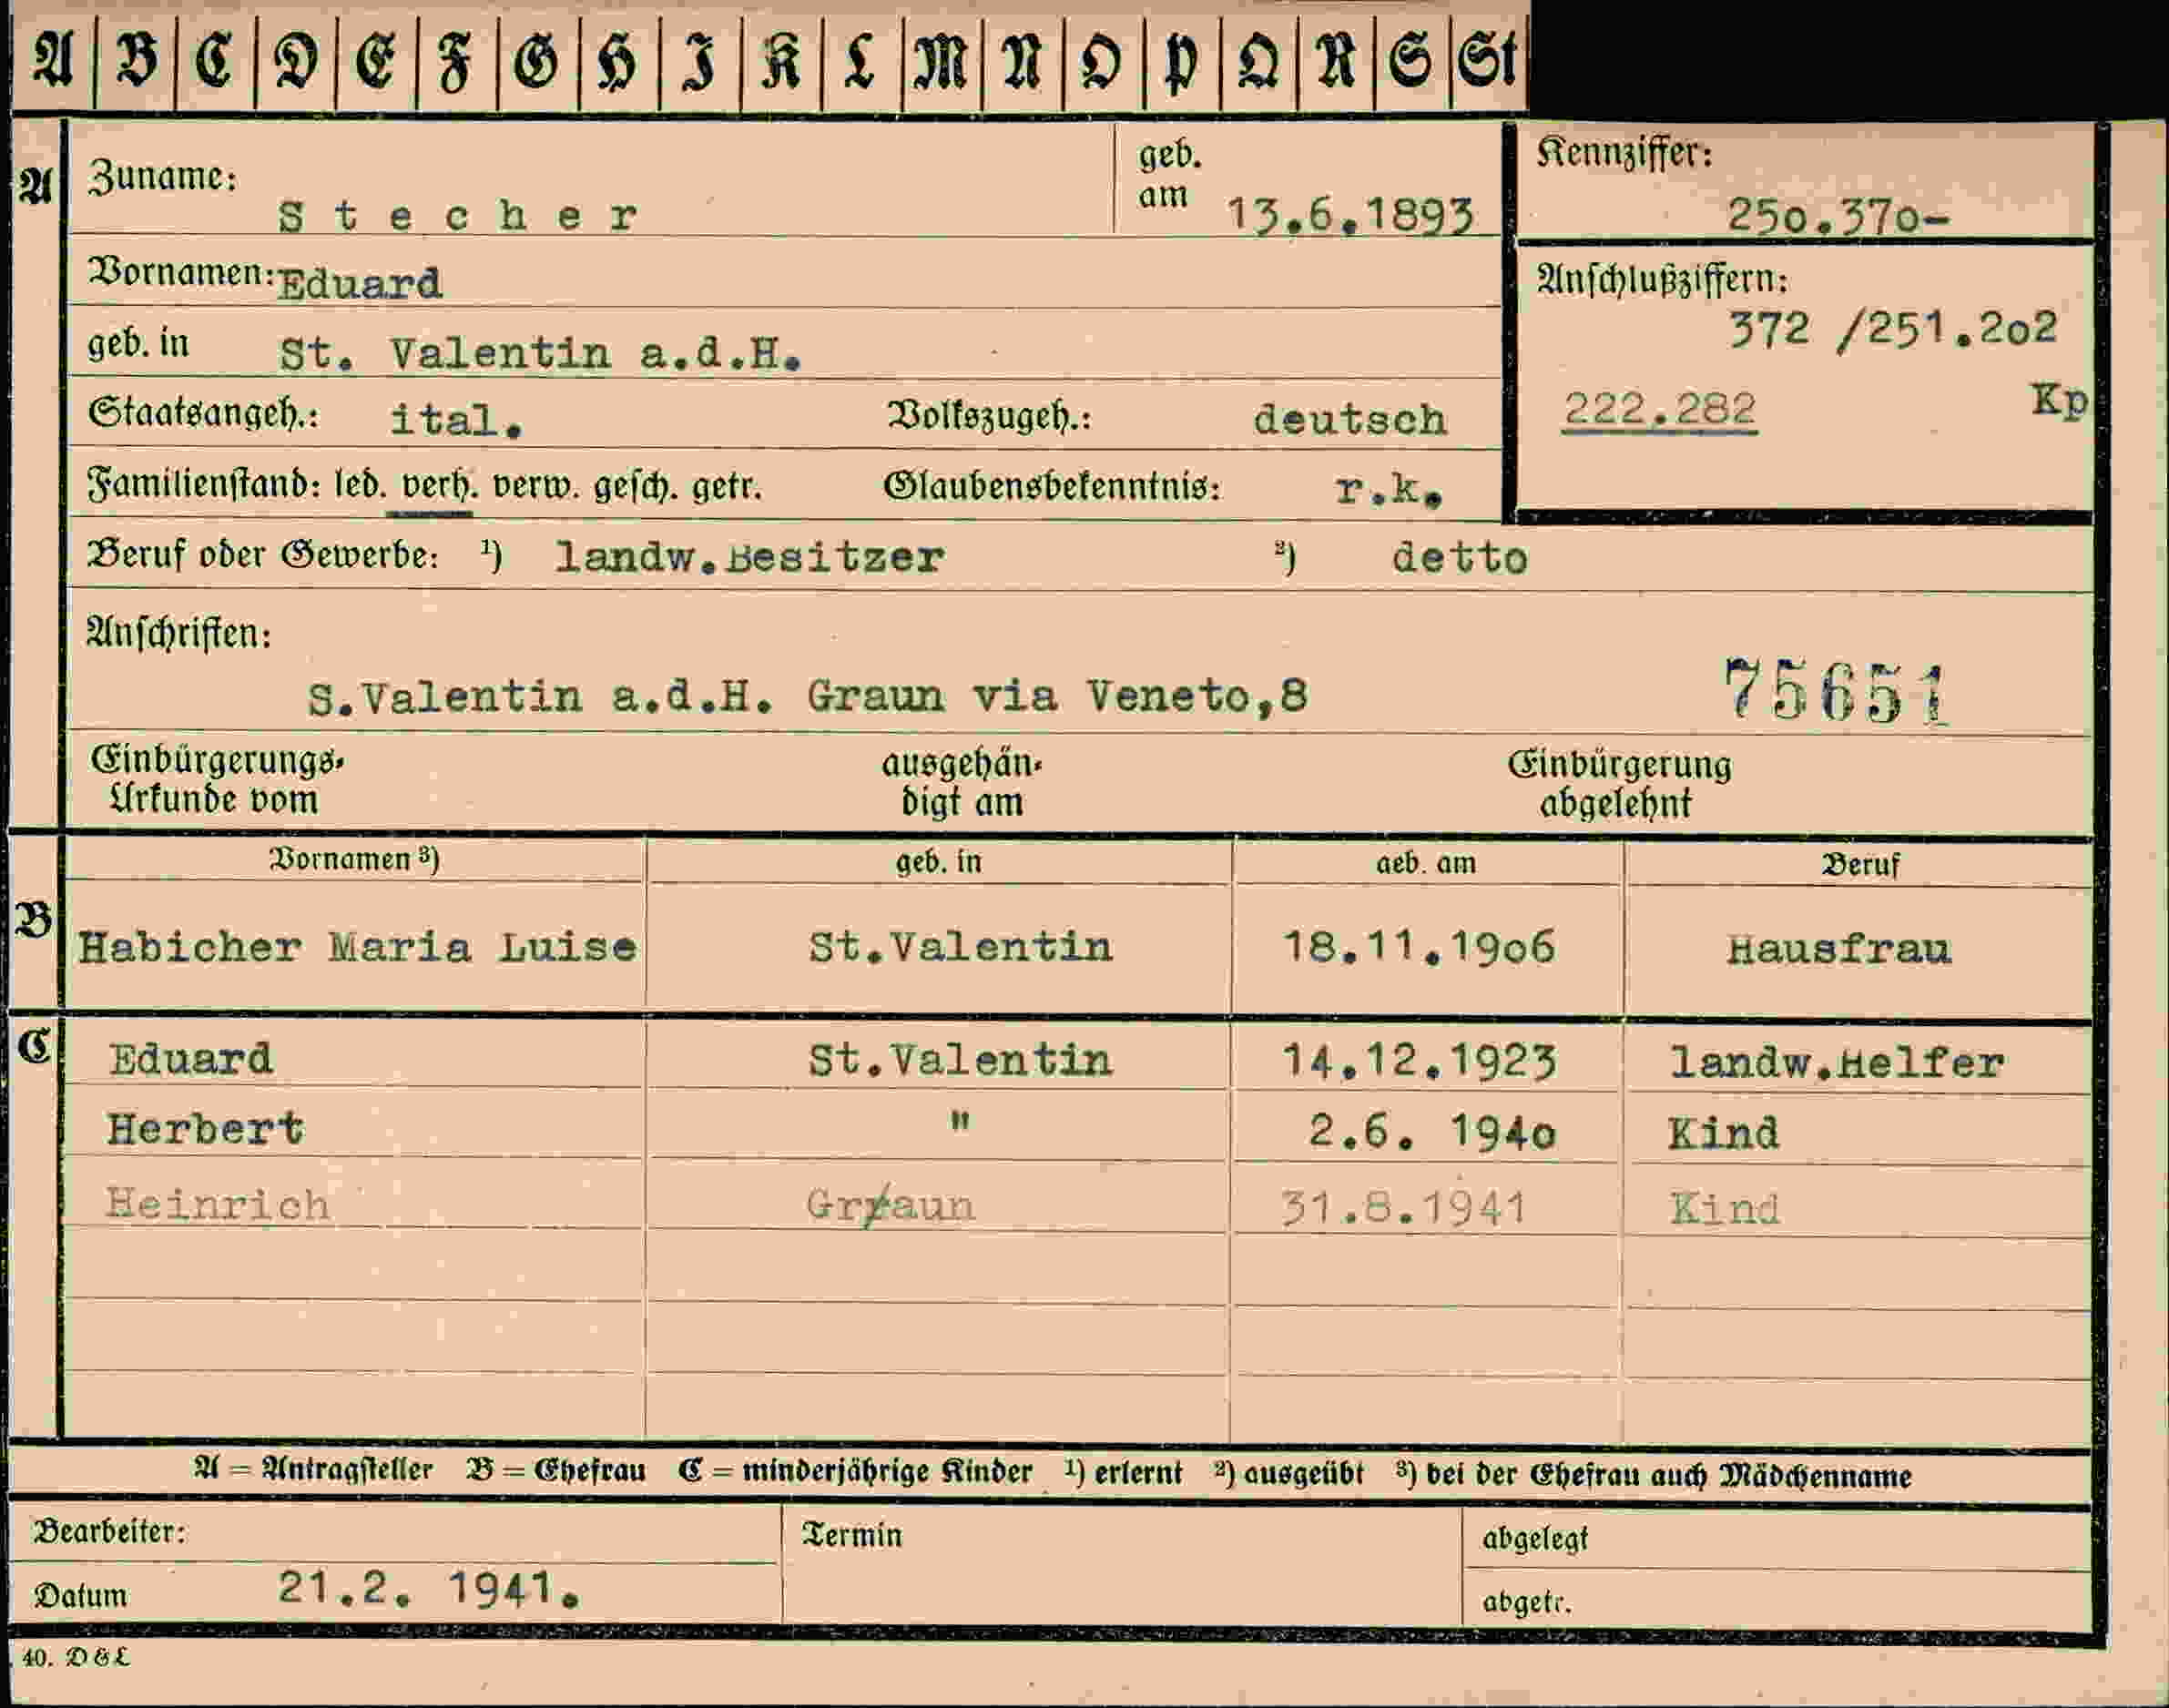 A B C D E F G H I K L M N O P Q R S St
A
Zuname: Stecher
geb. am 13.6.1893
Kennziffer:
250.370-
Vornamen: Eduard
Anschlußziffern:
372 /251.202
geb. in St. Valentin a.d.H.
222.282 Kp
Staatsangeh.: ital. Volkszugeh.: deutsch
Familienstand: led. verh. verw. gesch. getr. Glaubensbekenntnis: r.k.
Beruf oder Gewerbe: ¹) landw.Besitzer ²) detto
Anschriften:
S.Valentin a.d.H. Graun via Veneto,8
75651
Einbürgerungs- Urkunde vom
ausgehän- digt am
Einbürgerung abgelehnt
B
Vornamen ³) geb. in geb. am Beruf
Habicher Maria Luise St.Valentin 18.11.1906 Hausfrau
C
Eduard St.Valentin 14.12.1923 landw.Helfer
Herbert " 2.6. 1940 Kind
Heinrich Graun 31.8.1941 Kind
A = Antragsteller B = Ehefrau C = minderjährige Kinder ¹) erlernt ²) ausgeübt ³) bei der Ehefrau auch Mädchenname
Bearbeiter: Termin abgelegt
Datum 21.2. 1941. abgetr.
40. D & L